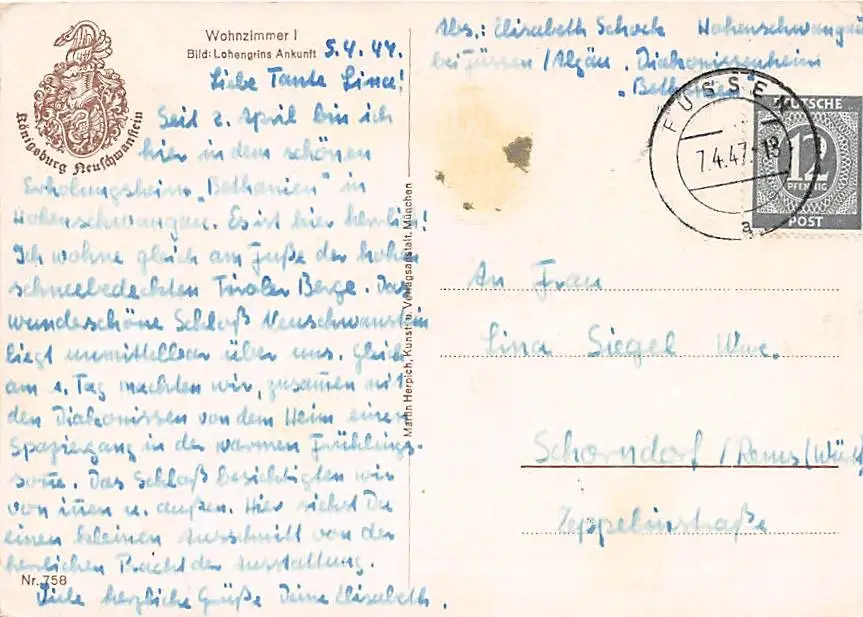 Wohnzimmer I
Bild: Lohengrins Ankunft
5.4.47.
Liebe Tante Lina!
Seit 2. April bin ich
hier in dem schönen
Erholungsheim „Bethanien" in
Hohenschwangau. Es ist hier herrlich!
Ich wohne gleich am Fuße der hohen
schneebedeckten Tiroler Berge. Das
wunderschöne Schloß Neuschwanstein
liegt unmittelbar über uns. Gleich
am 1. Tag machten wir, zusammen mit
den Diakonissen von dem Heim einen
Spaziergang in der warmen Frühlings-
sonne. Das Schloß besichtigten wir
von innen u. außen. Hier siehst Du
einen kleinen Ausschnitt von der
herrlichen Pracht der Ausstattung.
Viele herzliche Grüße Deine Elisabeth.
Königsburg Neuschwanstein
Nr. 758
Martin Herpich, Kunst- u. Verlagsanstalt, München
Abs.: Elisabeth Schock Hohenschwangau
bei Füssen/Algäu. Diakonissenheim
„Bethanien"
FÜSSEN
7.4.47.-18
a
DEUTSCHE
12
PFENNIG
POST
An Frau
Lina Siegel Wwe.
Schorndorf/Rems (Württ
Zeppelinstraße